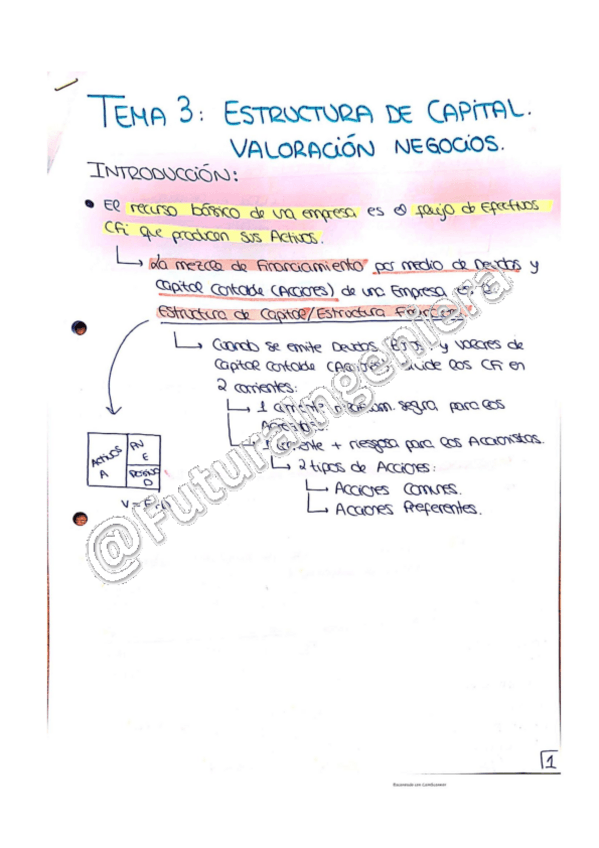 TEMA 3: ESTRUCTURA DE CAPITAL.
VALORACIÓN NEGOCIOS.
INTRODUCCIÓN:
• El recurso básico de una empresa es el flujo de Efectivos
CFi que producen sus Activos.
La mezcla de Financiamiento por medio de Deudas y
Capital Contable (Acciones) de una Empresa es
Estructura de Capital/Estructura
Cuando se emite Deudas y valores de
Capital Contable los CFi en
2 corrientes:
1 segura para los
1 + riesgosa para los Accionistas.
2 tipos de Acciones:
Acciones Comunes.
Acciones Preferentes.
ACTIVOS
A
PN
E
D
V =
@FuturaIngeniera
1
Escaneado con CamScanner